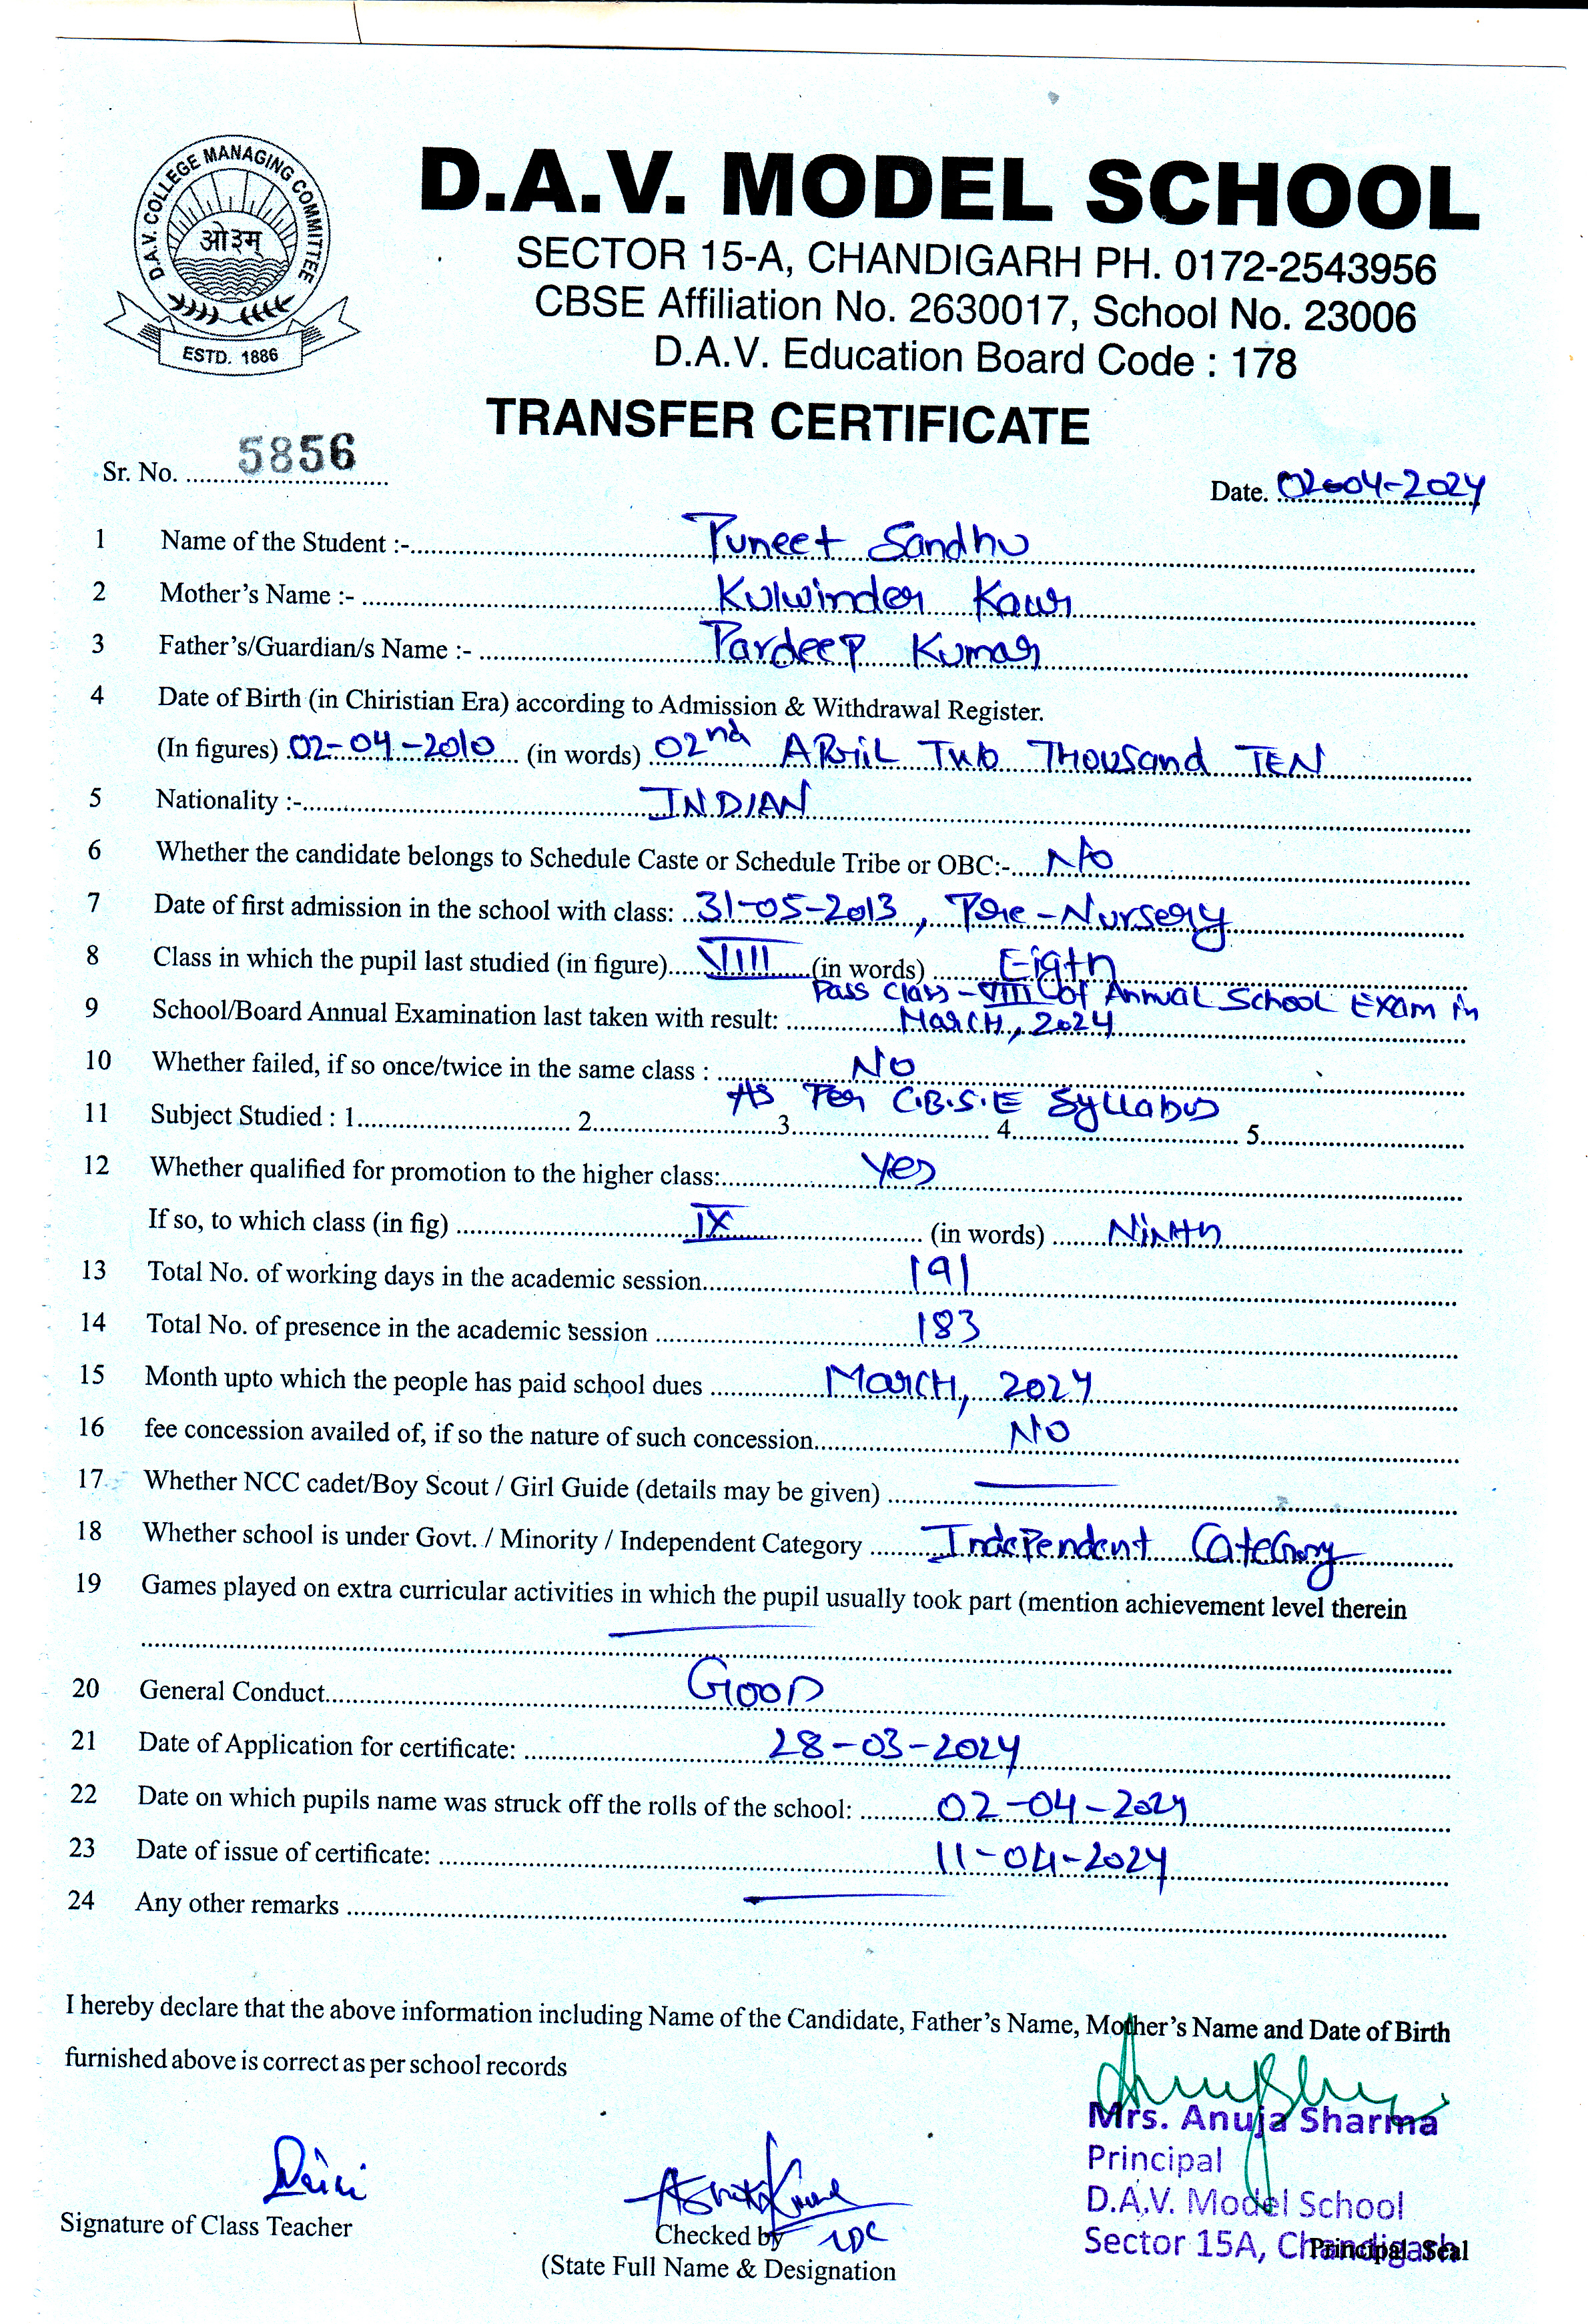 D.A.V. COLLEGE MANAGING COMMITTEE
ओ३म्
ESTD. 1886
D.A.V. MODEL SCHOOL
SECTOR 15-A, CHANDIGARH PH. 0172-2543956
CBSE Affiliation No. 2630017, School No. 23006
D.A.V. Education Board Code : 178
TRANSFER CERTIFICATE
Sr. No. 5856
Date. 02-04-2024
1 Name of the Student :- Puneet Sandhu
2 Mother's Name :- Kulwinder Kaur
3 Father's/Guardian/s Name :- Pardeep Kumar
4 Date of Birth (in Chiristian Era) according to Admission & Withdrawal Register.
(In figures) 02-04-2010 (in words) 02nd APRiL TWO THOUSand TEN
5 Nationality :- INDIAN
6 Whether the candidate belongs to Schedule Caste or Schedule Tribe or OBC:- No
7 Date of first admission in the school with class: 31-05-2013, Pre-Nursery
8 Class in which the pupil last studied (in figure) VIII (in words) Eigth
Pass Class-VIII of Annual School Exam in
9 School/Board Annual Examination last taken with result: March, 2024
10 Whether failed, if so once/twice in the same class : No
As Per C.B.S.E Syllabus
11 Subject Studied : 1 2 3 4 5
12 Whether qualified for promotion to the higher class: Yes
If so, to which class (in fig) IX (in words) Ninth
13 Total No. of working days in the academic session 191
14 Total No. of presence in the academic session 183
15 Month upto which the people has paid school dues March, 2024
16 fee concession availed of, if so the nature of such concession No
17 Whether NCC cadet/Boy Scout / Girl Guide (details may be given)
18 Whether school is under Govt. / Minority / Independent Category Independent Category
19 Games played on extra curricular activities in which the pupil usually took part (mention achievement level therein
20 General Conduct Good
21 Date of Application for certificate: 28-03-2024
22 Date on which pupils name was struck off the rolls of the school: 02-04-2024
23 Date of issue of certificate: 11-04-2024
24 Any other remarks
I hereby declare that the above information including Name of the Candidate, Father's Name, Mother's Name and Date of Birth
furnished above is correct as per school records
Mrs. Anuja Sharma
Principal
D.A.V. Model School
Sector 15A, Chandigarh
Principal Seal
Signature of Class Teacher
Checked by LDC
(State Full Name & Designation